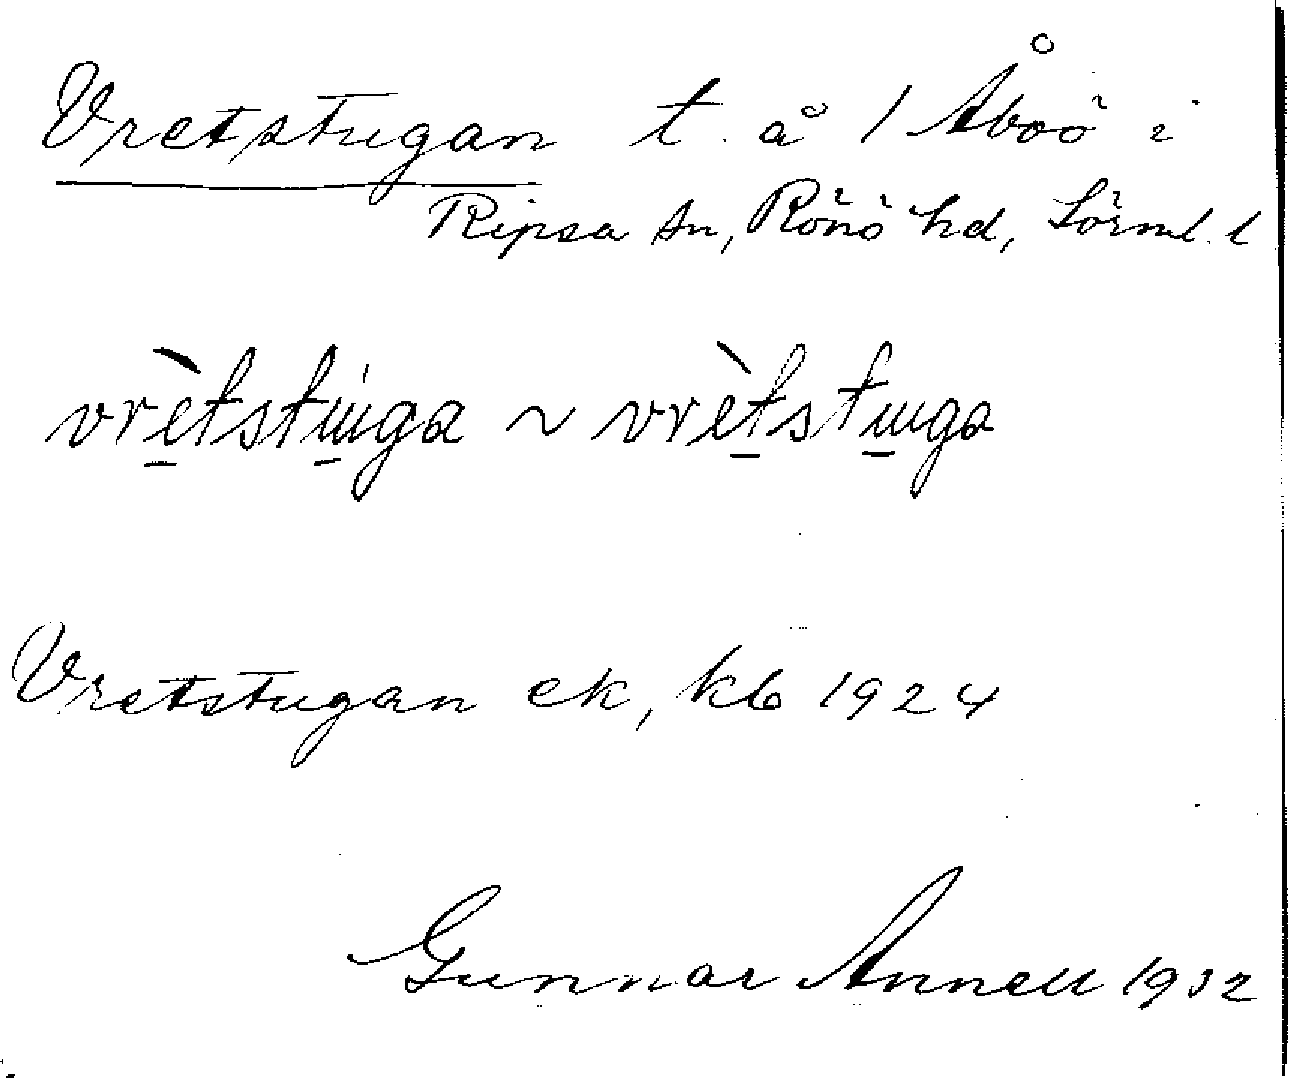 Vretstugan t. å 1 Åboö i
Ripsa sn, Rönö hd, Sörml. l
vrètstuga ~ vrètstuga
Vretstugan ek, kb 1924
Gunnar Annell 1932